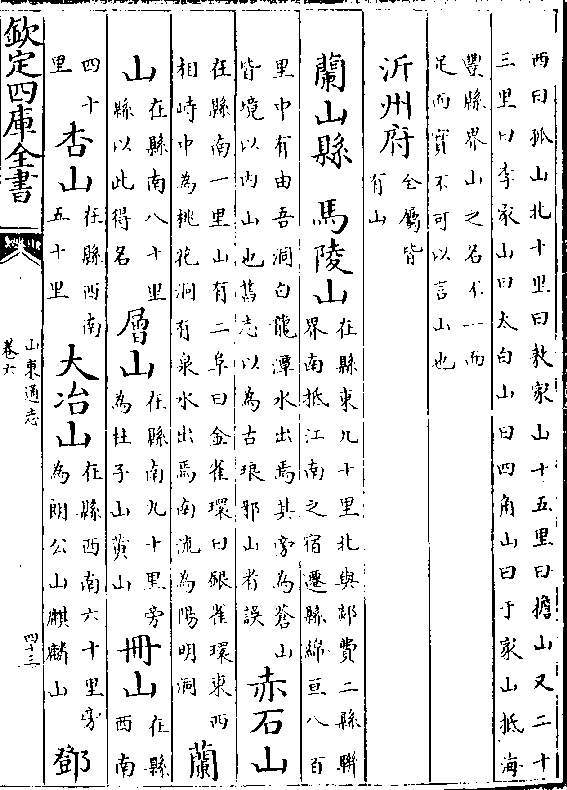 西曰孤山北十里曰教家山十五里曰擔山又二十
三里曰李家山曰太白山曰四角山曰于家山抵海
豐縣界山之名不一而
足而實不可以言山也
沂州府全屬皆
有山
蘭山縣 馬陵山在縣東九十里北與郯費二縣聯
界南抵江南之宿遷縣綿亘八百
里中有由吾洞白龍潭水出焉其旁為蒼山
皆境以内山也舊志以為古琅邪山者誤 赤石山
在縣南一里山有二阜曰金雀環曰銀雀環東西
相峙中為桃花洞有泉水出焉南流為陽明洞 蘭
山在縣南八十里
縣以此得名 層山在縣南九十里旁
為柱子山黄山 冊山在縣
西南
四十
里 杏山在縣西南
五十里 大冶山在縣西南六十里旁
為朗公山麒麟山 鄧
欽定四庫全書
山東通志
卷六
四十三